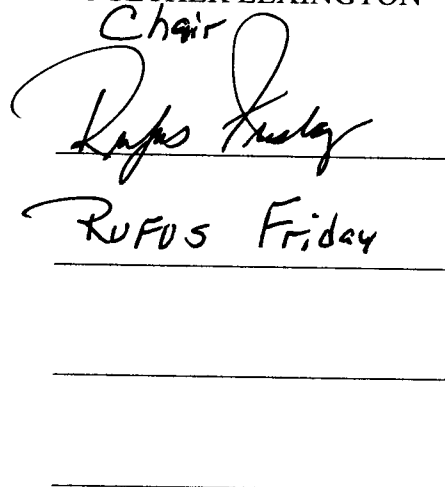 LEXINGTON
Chair
Rufus Friday
RUFUS Friday